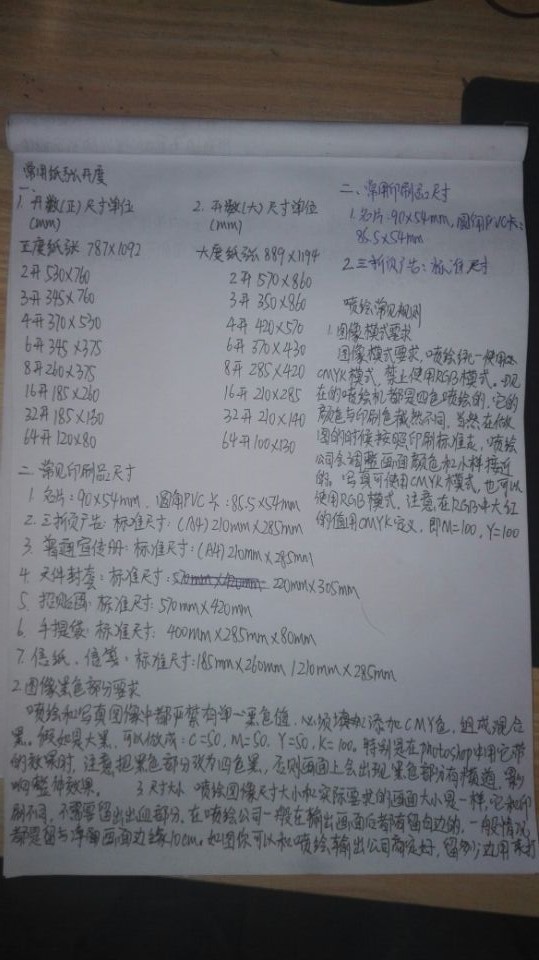 常用纸张开度
一、
1. 开数(正)尺寸单位
(mm)
正度纸张 787×1092
2开 530×760
3开 345×760
4开 370×530
6开 345×375
8开 260×375
16开 185×260
32开 185×130
64开 120×80
2. 开数(大)尺寸单位
(mm)
大度纸张 889×1194
2开 570×860
3开 350×860
4开 420×570
6开 370×430
8开 285×420
16开 210×285
32开 210×140
64开 100×130
二、常用印刷品尺寸
1. 名片:90×54mm,圆角PVC卡:
85.5×54mm
2. 三折广告:标准尺寸
喷绘常见规则
1. 图像模式要求
图像模式要求,喷绘统一使用
CMYK模式,禁止使用RGB模式。现
在的喷绘机都是四色喷绘的,它的
颜色与印刷色截然不同,当然在做
图的时候按照印刷标准走,喷绘
公司会调整画面颜色和小样接近
的。写真可使用CMYK模式,也可以
使用RGB模式,注意在RGB中大红
的值用CMYK定义,即M=100,Y=100
二、常见印刷品尺寸
1. 名片:90×54mm,圆角PVC卡:85.5×54mm
2. 三折页广告:标准尺寸:(A4)210mm×285mm
3. 普通宣传册:标准尺寸:(A4)210mm×285mm
4. 文件封套:标准尺寸:220mm×305mm
5. 招贴画:标准尺寸:570mm×420mm
6. 手提袋:标准尺寸:400mm×285mm×80mm
7. 信纸、信笺:标准尺寸:185mm×260mm/210mm×285mm
2. 图像黑色部分要求
喷绘和写真图像中都严禁有单一黑色值,必须填加添加CMY色,组成混合
黑。假如是大黑,可以做成:C=50,M=50,Y=50,K=100。特别是在Photoshop中用它带
的效果时,注意把黑色部分改为四色黑,否则画面上会出现黑色部分有横道,影
响整体效果。 3 尺寸大小 喷绘图像尺寸大小和实际要求的画面大小是一样,它和印
刷不同,不需要留出出血部分,在喷绘公司一般在输出画面后都有留白边的,一般情况
都是留与净画画面边缘10cm。如图你可以和喷绘输出公司商定好,留多少边用来打